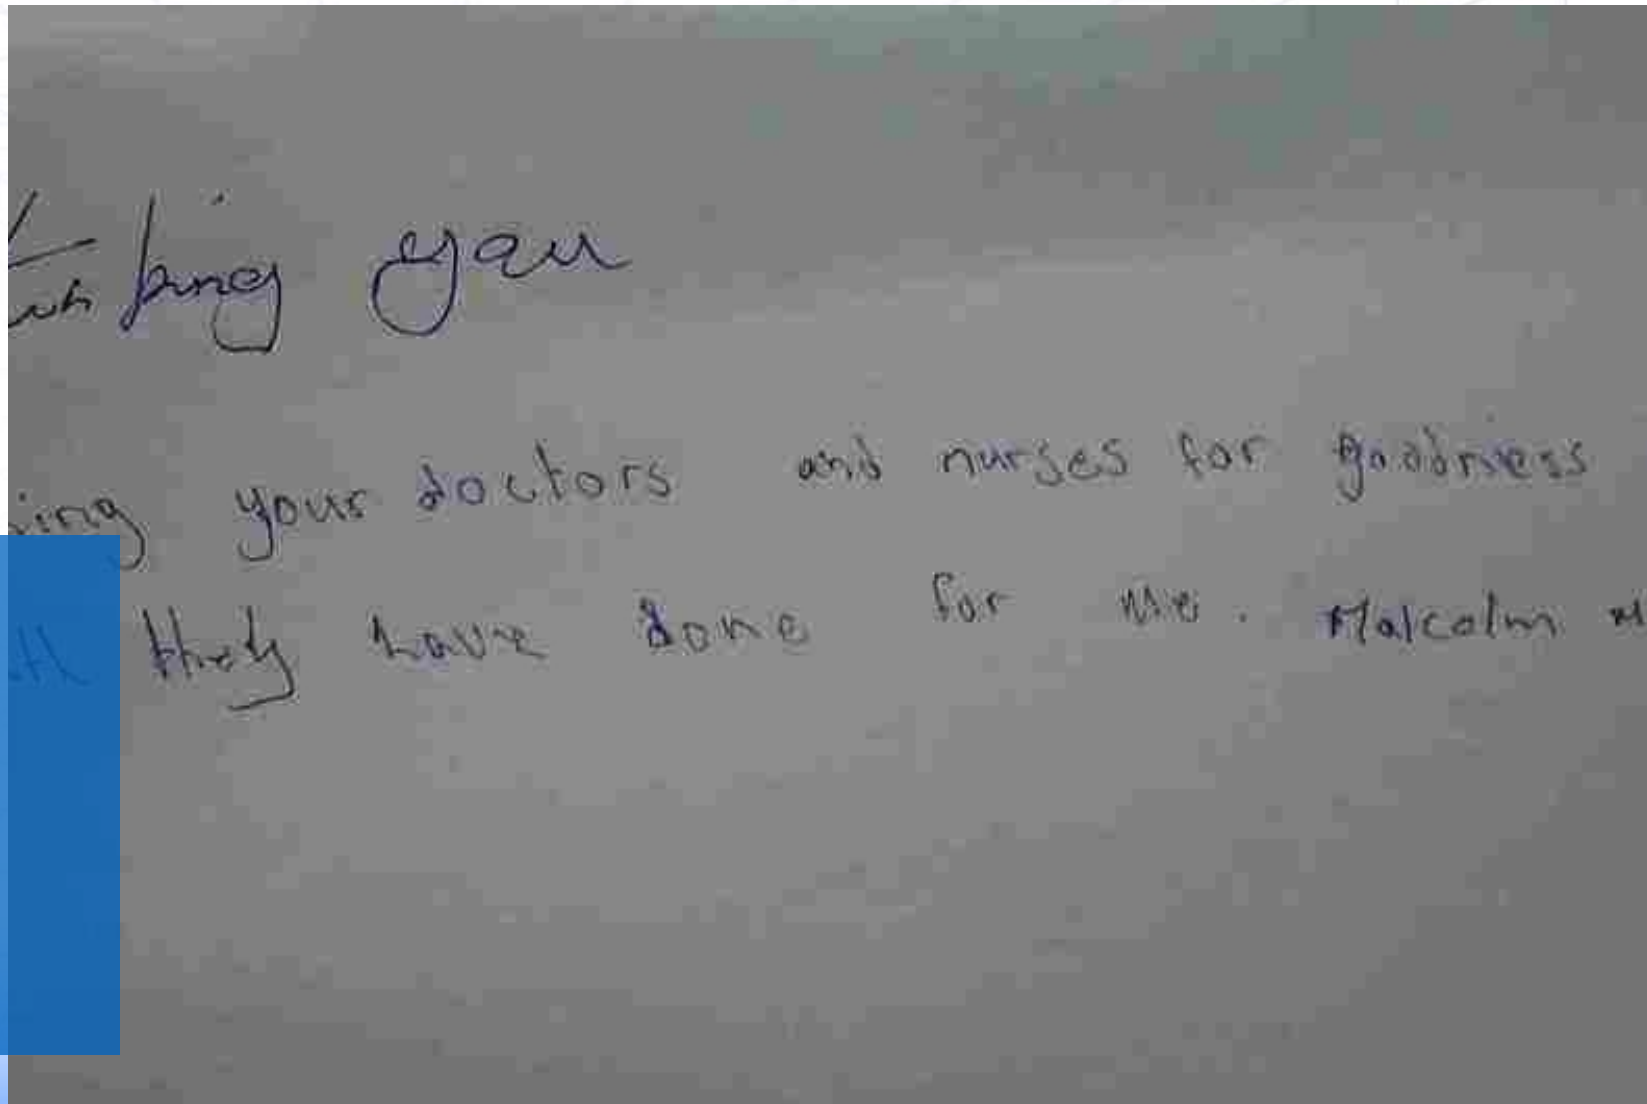 yau
your doctors and nurses for goodness
they have done for me. Malcolm